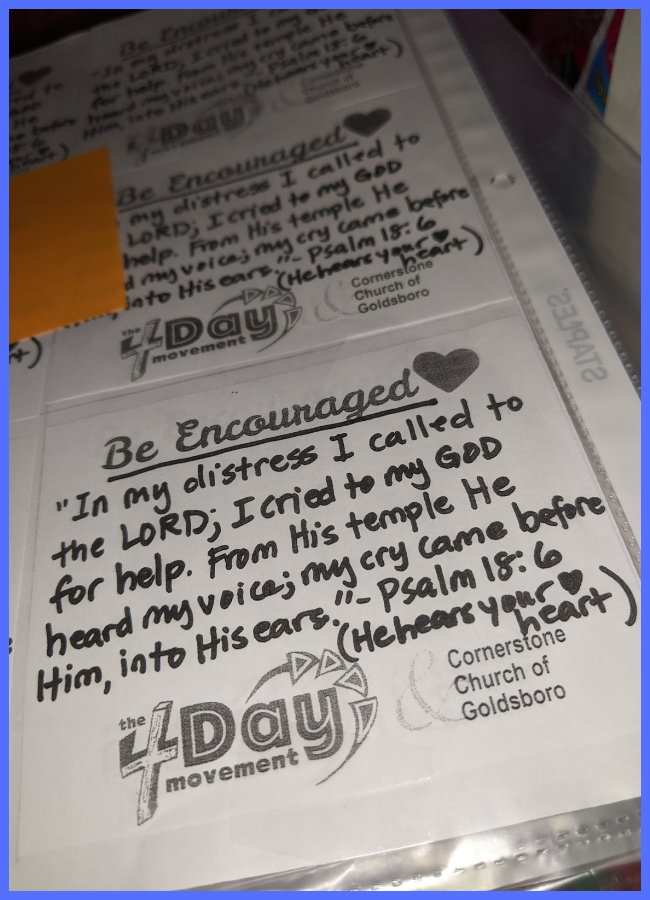 Be Encouraged
"In my distress I called to
the LORD; I cried to my God
for help. From His temple He
heard my voice; my cry came before
Him, into His ears."- Psalm 18:6
(He hears your heart)
Cornerstone
Church of
Goldsboro
Be Encouraged
my distress I called to
LORD; I cried to my GOD
help. From His temple He
d my voice; my cry came before
into His ears."- Psalm 18:6
(He hears your heart)
the
4Day
movement
Cornerstone
Church of
Goldsboro
STAPLES.
Be Encouraged
"In my distress I called to
the LORD; I cried to my GOD
for help. From His temple He
heard my voice; my cry came before
Him, into His ears."- Psalm 18:6
(He hears your
heart)
the
4Day
movement
&
Cornerstone
Church of
Goldsboro